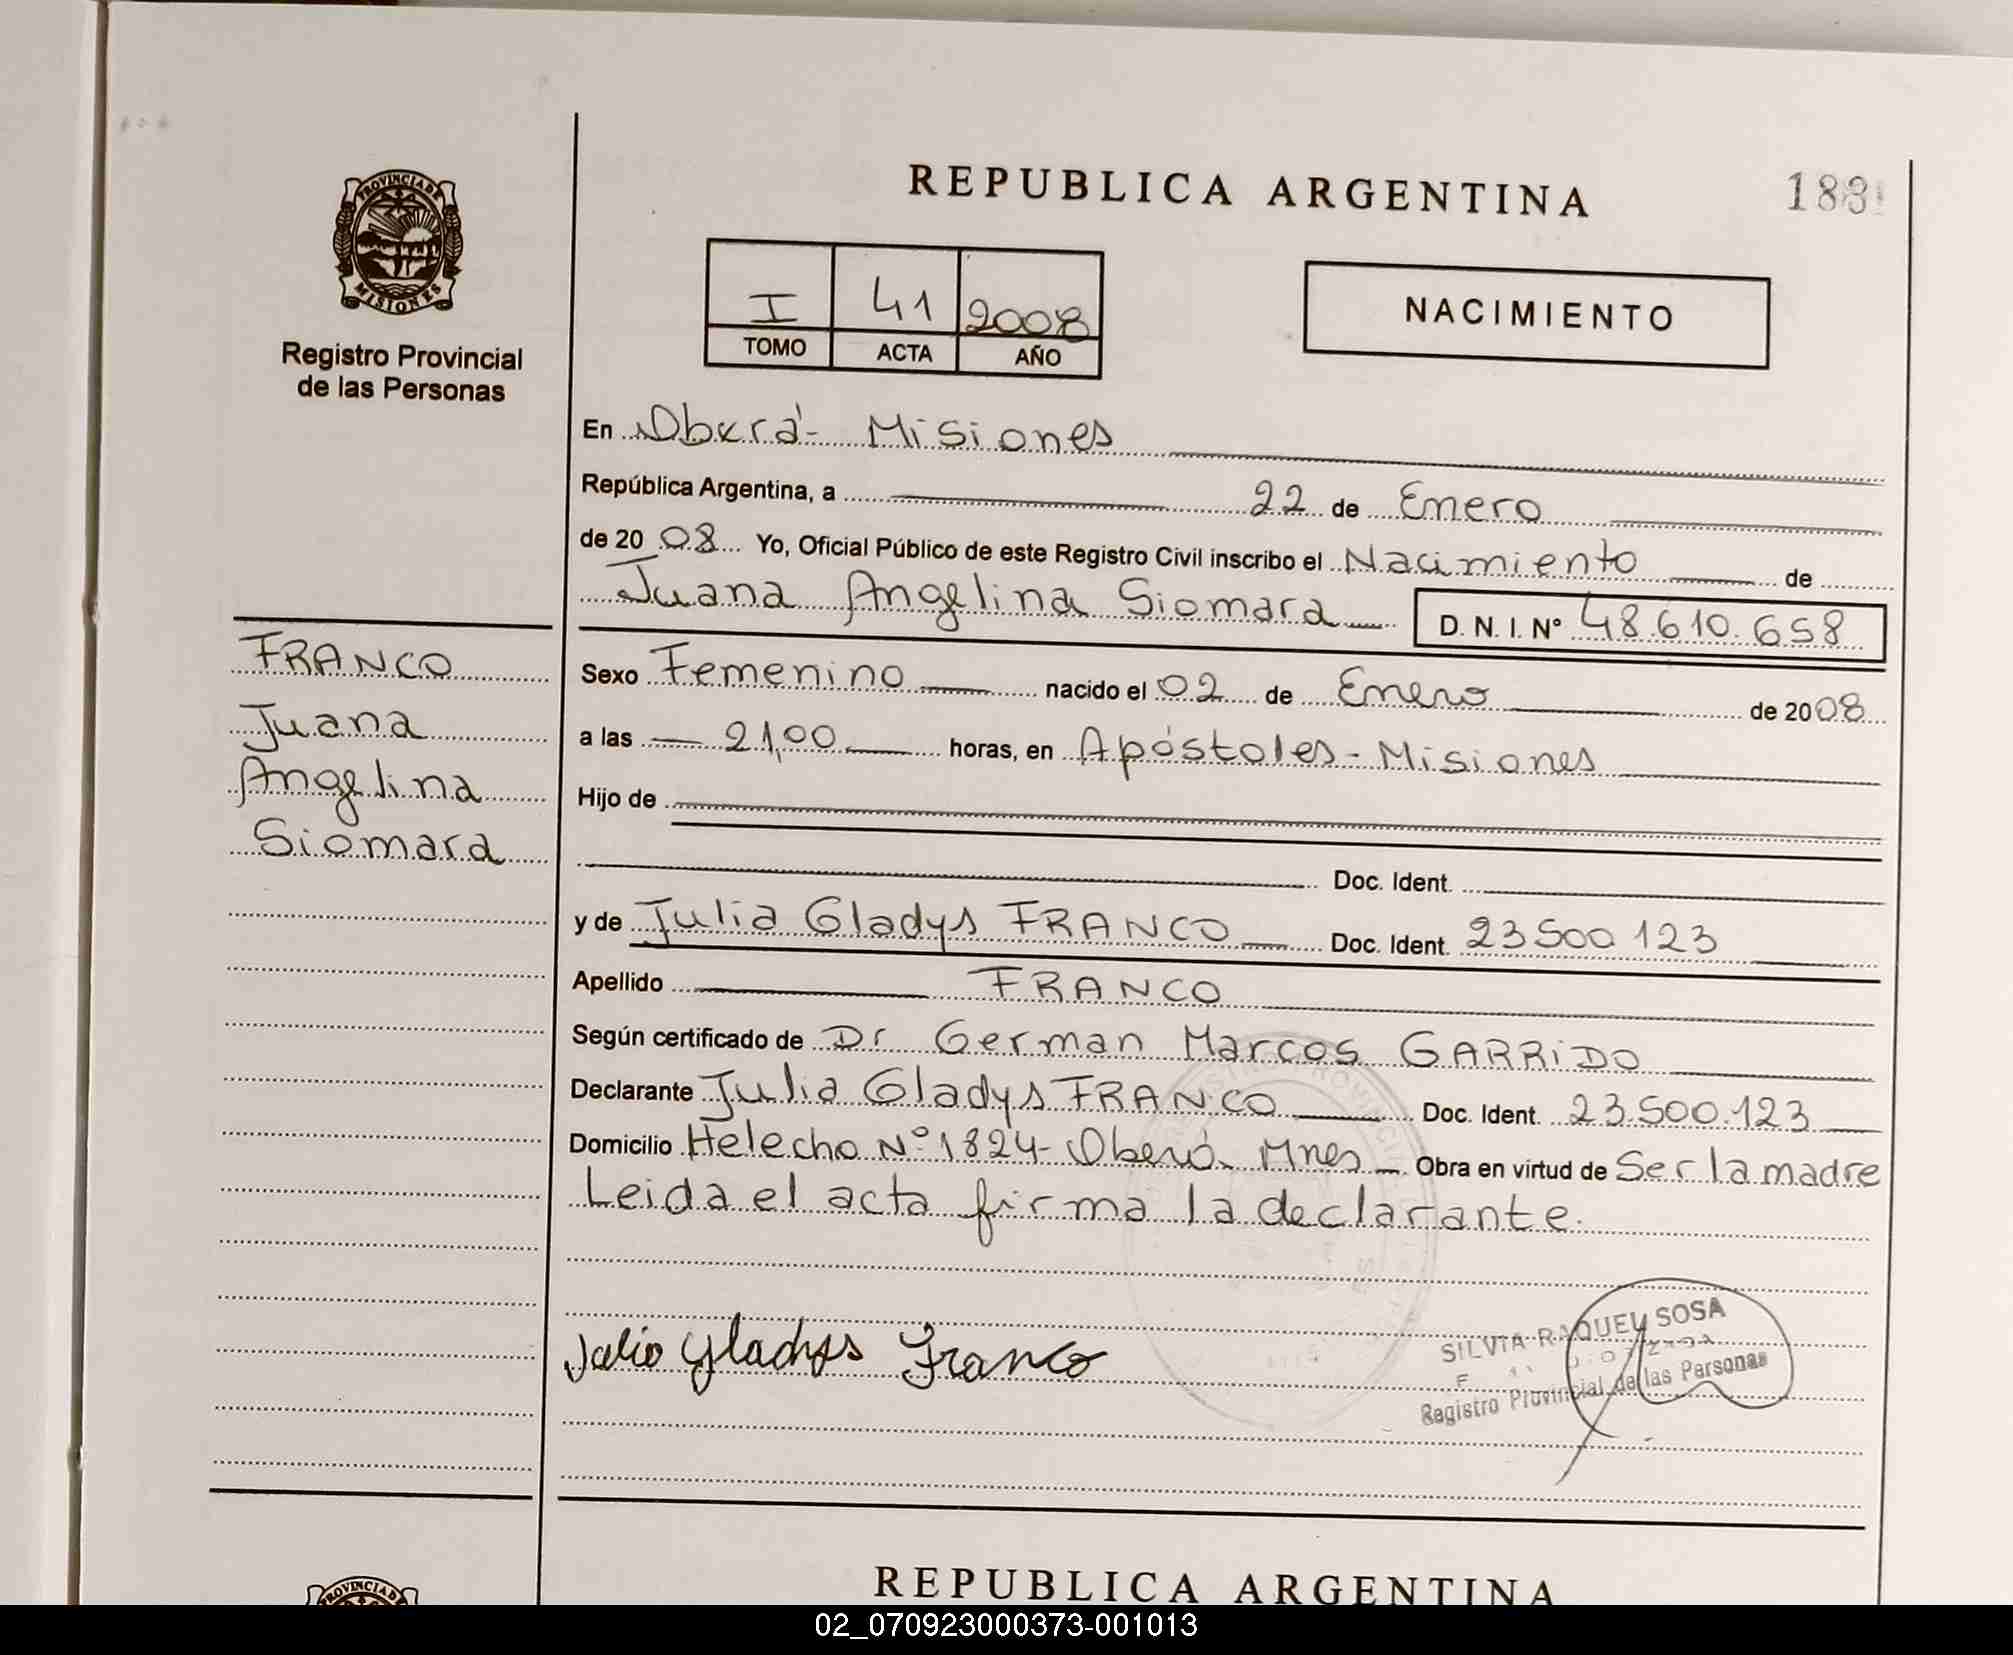 REPUBLICA ARGENTINA
PROVINCIA DE
MISIONES
Registro Provincial
de las Personas
I 41 2008
TOMO ACTA AÑO
NACIMIENTO
En Oberá - Misiones
República Argentina, a 22 de Enero
de 2008 Yo, Oficial Público de este Registro Civil inscribo el Nacimiento de
Juana Angelina Siomara D. N. I. N° 48.610.658
FRANCO
Juana
Angelina
Siomara
Sexo Femenino nacido el 02 de Enero de 2008
a las 21,00 horas, en Apóstoles - Misiones
Hijo de
Doc. Ident.
y de Julia Gladys FRANCO Doc. Ident. 23500123
Apellido FRANCO
Según certificado de Dr German Marcos GARRiDO
Declarante Julia Gladys FRANCO Doc. Ident. 23.500.123
Domicilio Helecho N° 1824 - Oberá Mnes Obra en virtud de Ser la madre
Leida el acta firma la declarante.
Julia Gladys Franco
SILVIA RAQUEL SOSA
Registro Provincial de las Personas
REPUBLICA ARGENTINA
PROVINCIA DE
02_070923000373-001013